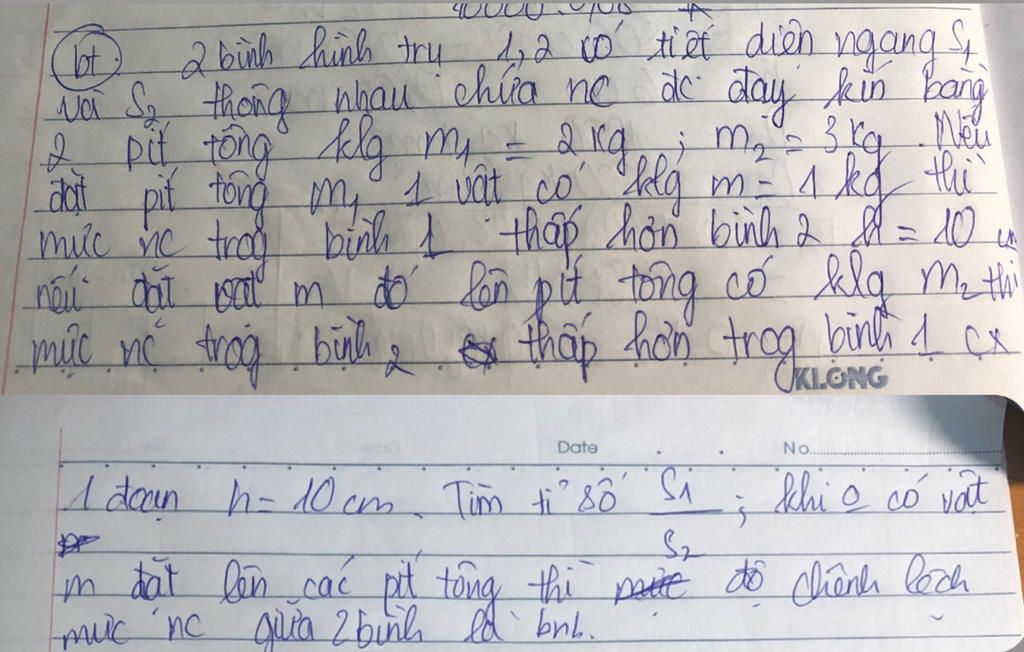 bt. 2 bình hình trụ 1, 2 có tiết diện ngang S1
và S2 thông nhau chứa nc đc đậy kín bằng
2 pít tông klg m1 = 2 kg ; m2 = 3 kg. Nếu
đặt pít tông m1 1 vật có klg m = 1 kg thì
mức nc trog bình 1 thấp hơn bình 2 h = 10 cm
nếu đặt vật m đó lên pít tông có klg m2 thì
mực nc trog bình 2 thấp hơn trog bình 1 cx
KLONG
Date No.
1 đoạn h = 10 cm. Tìm tỉ số S1/S2 ; khi o có vật
m đặt lên các pít tông thì độ chênh lệch
mức nc giữa 2 bình là bnh.